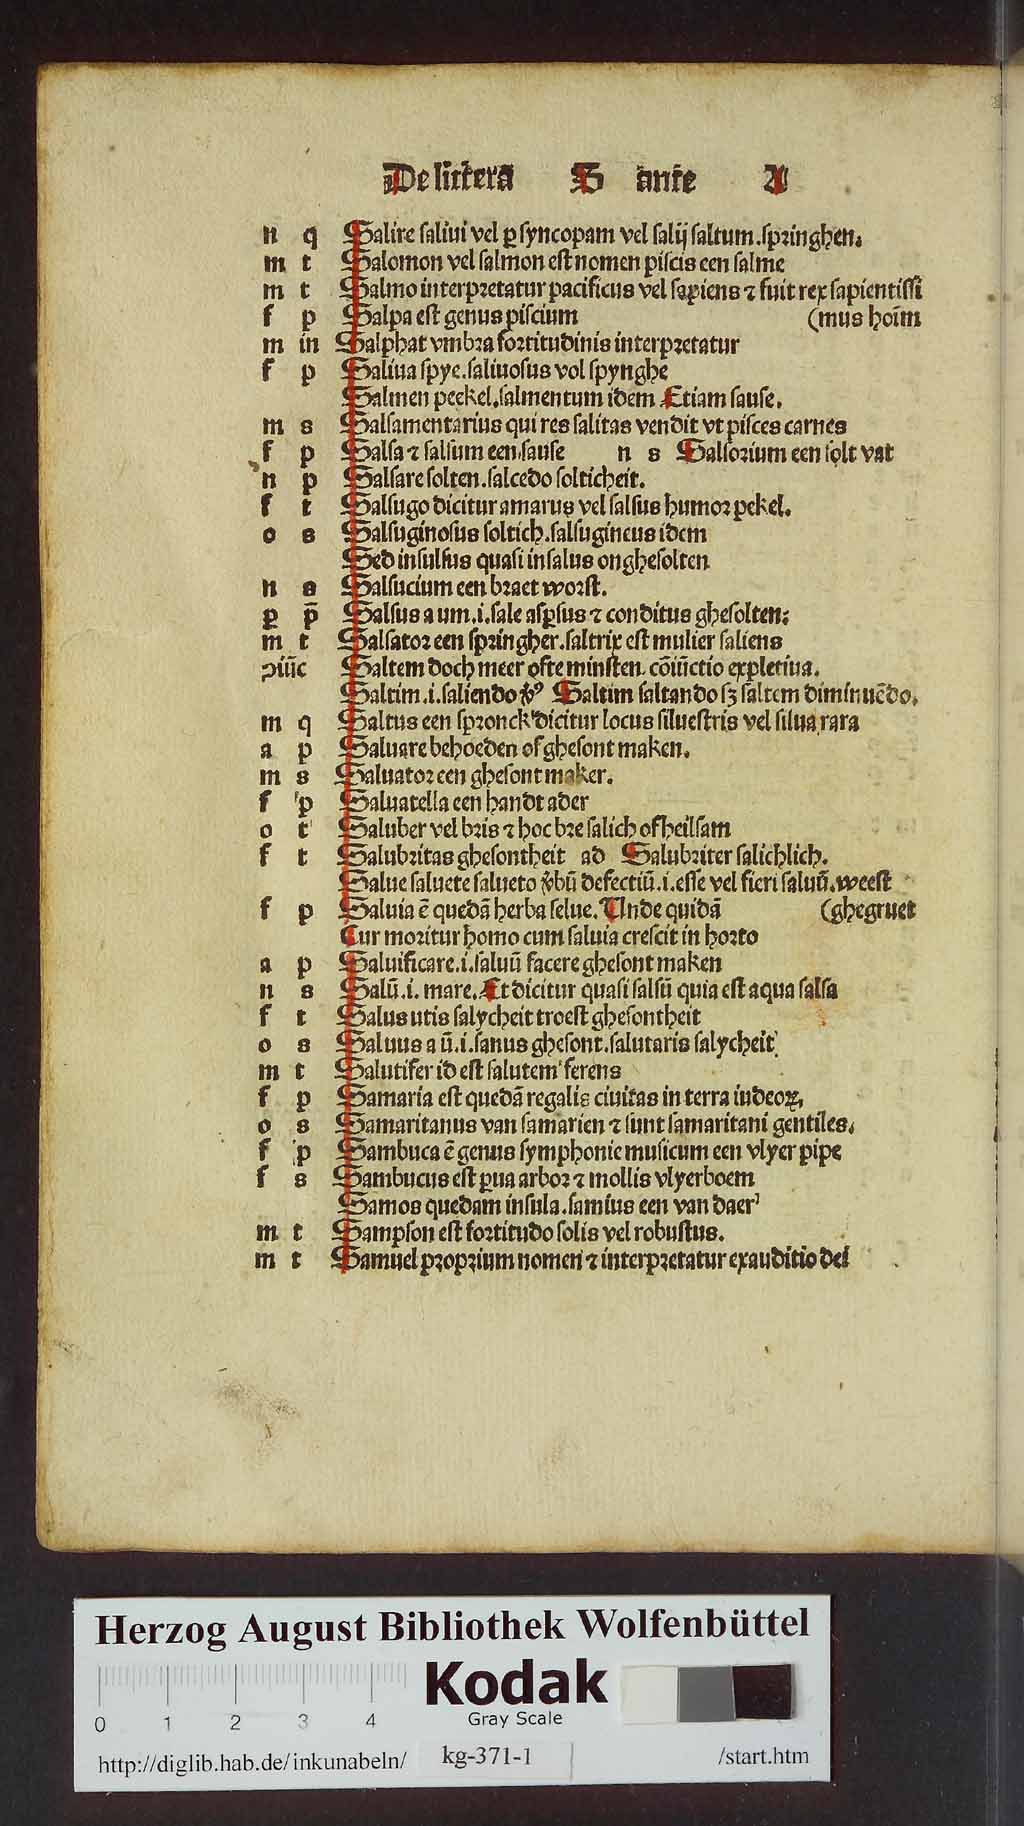 De littera S ante A
n q Salire saliui vel ꝑ syncopam vel salij saltum .springhen.
m t Salomon vel salmon est nomen piscis een salme
m t Salmo interpretatur pacificus vel sapiens ⁊ fuit rex sapientissi
f p Salpa est genus piscium (mus hoīm
m in Salphat vmbra fortitudinis interpretatur
f p Saliua spye. saliuosus vol spynghe
Salmen peekel. salmentum idem Etiam sause.
m s Salsamentarius qui res salitas vendit vt pisces carnes
f p Salsa ⁊ salsum een sause n s Salsorium een solt vat
n p Salsare solten. salcedo solticheit.
f t Salsugo dicitur amarus vel salsus humor pekel.
o s Salsuginosus soltich. salsugineus idem
Sed insulsus quasi insalus onghesolten
n s Salsucium een braet worst.
ꝑ p̄ Salsus a um .i. sale asꝑsus ⁊ conditus ghesolten:
m t Salsator een springher. saltrix est mulier saliens
ꝯiūc Saltem doch meer ofte minsten. cōiūctio expletiua.
Saltim .i. saliendo v̄ꝰ Saltim saltando sꝫ saltem diminuēdo.
m q Saltus een spronck dicitur locus siluestris vel silua rara
a p Saluare behoeden of ghesont maken.
m s Saluator een ghesont maker.
f p Saluatella een handt ader
o t Saluber vel bris ⁊ hoc bre salich of heilsam
f t Salubritas ghesontheit ad Salubriter salichlich.
Salue saluete salueto v̄bū defectiū .i. esse vel fieri saluū. weest
f p Saluia ē quedā herba selue. Unde quidā (ghegruet
Cur moritur homo cum saluia crescit in horto
a p Saluificare .i. saluū facere ghesont maken
n s Salū .i. mare. Et dicitur quasi salsū quia est aqua salsa
f t Salus utis salycheit troest ghesontheit
o s Saluus a ū .i. sanus ghesont. salutaris salycheit
m t Salutifer id est salutem ferens
f p Samaria est quedā regalis ciuitas in terra iudeoꝝ,
o s Samaritanus van samarien ⁊ sunt samaritani gentiles.
f p Sambuca ē genus symphonie musicum een vlyer pipe
f s Sambucus est ꝑua arbor ⁊ mollis vlyerboem
Samos quedam insula. samius een van daer
m t Sampson est fortitudo solis vel robustus.
m t Samuel proprium nomen ⁊ interpretatur exauditio dei
Herzog August Bibliothek Wolfenbüttel
Kodak
Gray Scale
0 1 2 3 4
http://diglib.hab.de/inkunabeln/ kg-371-1 /start.htm